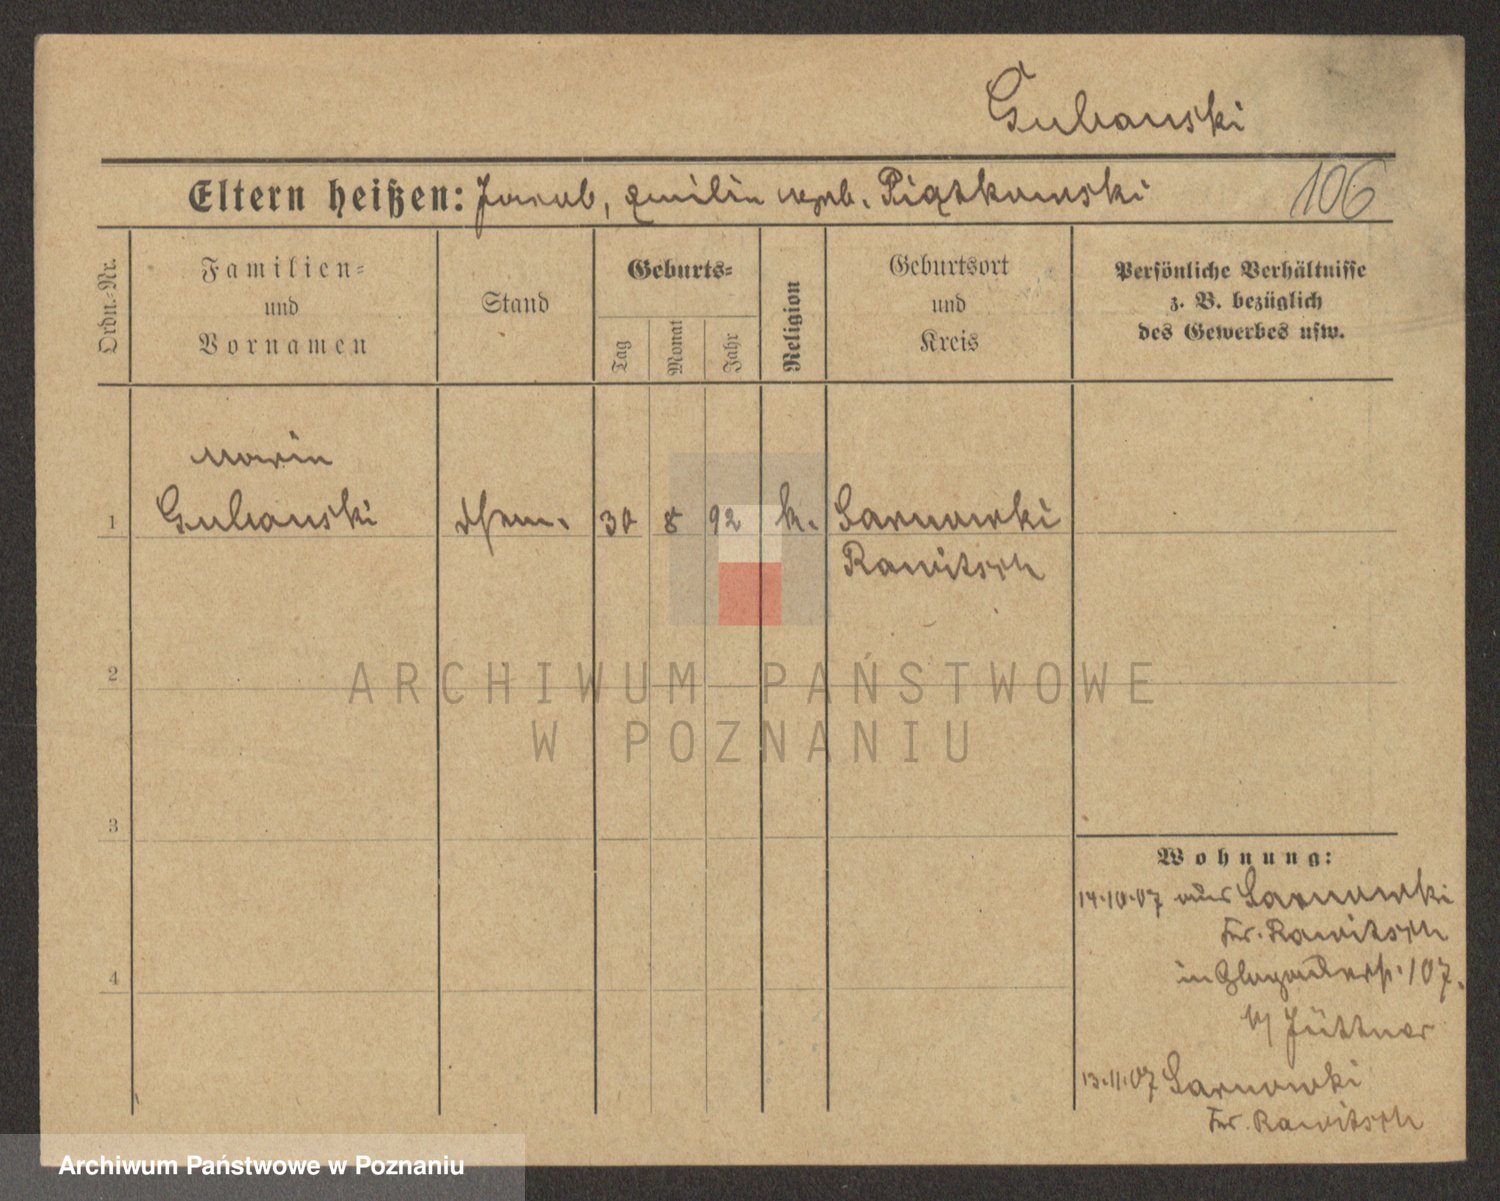 Gubanski
Eltern heißen: Jacob, Emilie geb. Piątkowski
106
Ordn.-Nr.
Familien-
und
Vornamen
Stand
Geburts-
Tag
Monat
Jahr
Religion
Geburtsort
und
Kreis
Persönliche Verhältnisse
z. B. bezüglich
des Gewerbes usw.
Marie
1 Gubanski 30 8 92 k. Sarnowki
Rawitsch
2
3
4
Wohnung:
14.10.07 aus Sarnowki
Kr. Rawitsch
in 107.
b/ Jüttner
13.11.07 Sarnowki
Kr. Rawitsch
ARCHIWUM PAŃSTWOWE
W POZNANIU
Archiwum Państwowe w Poznaniu